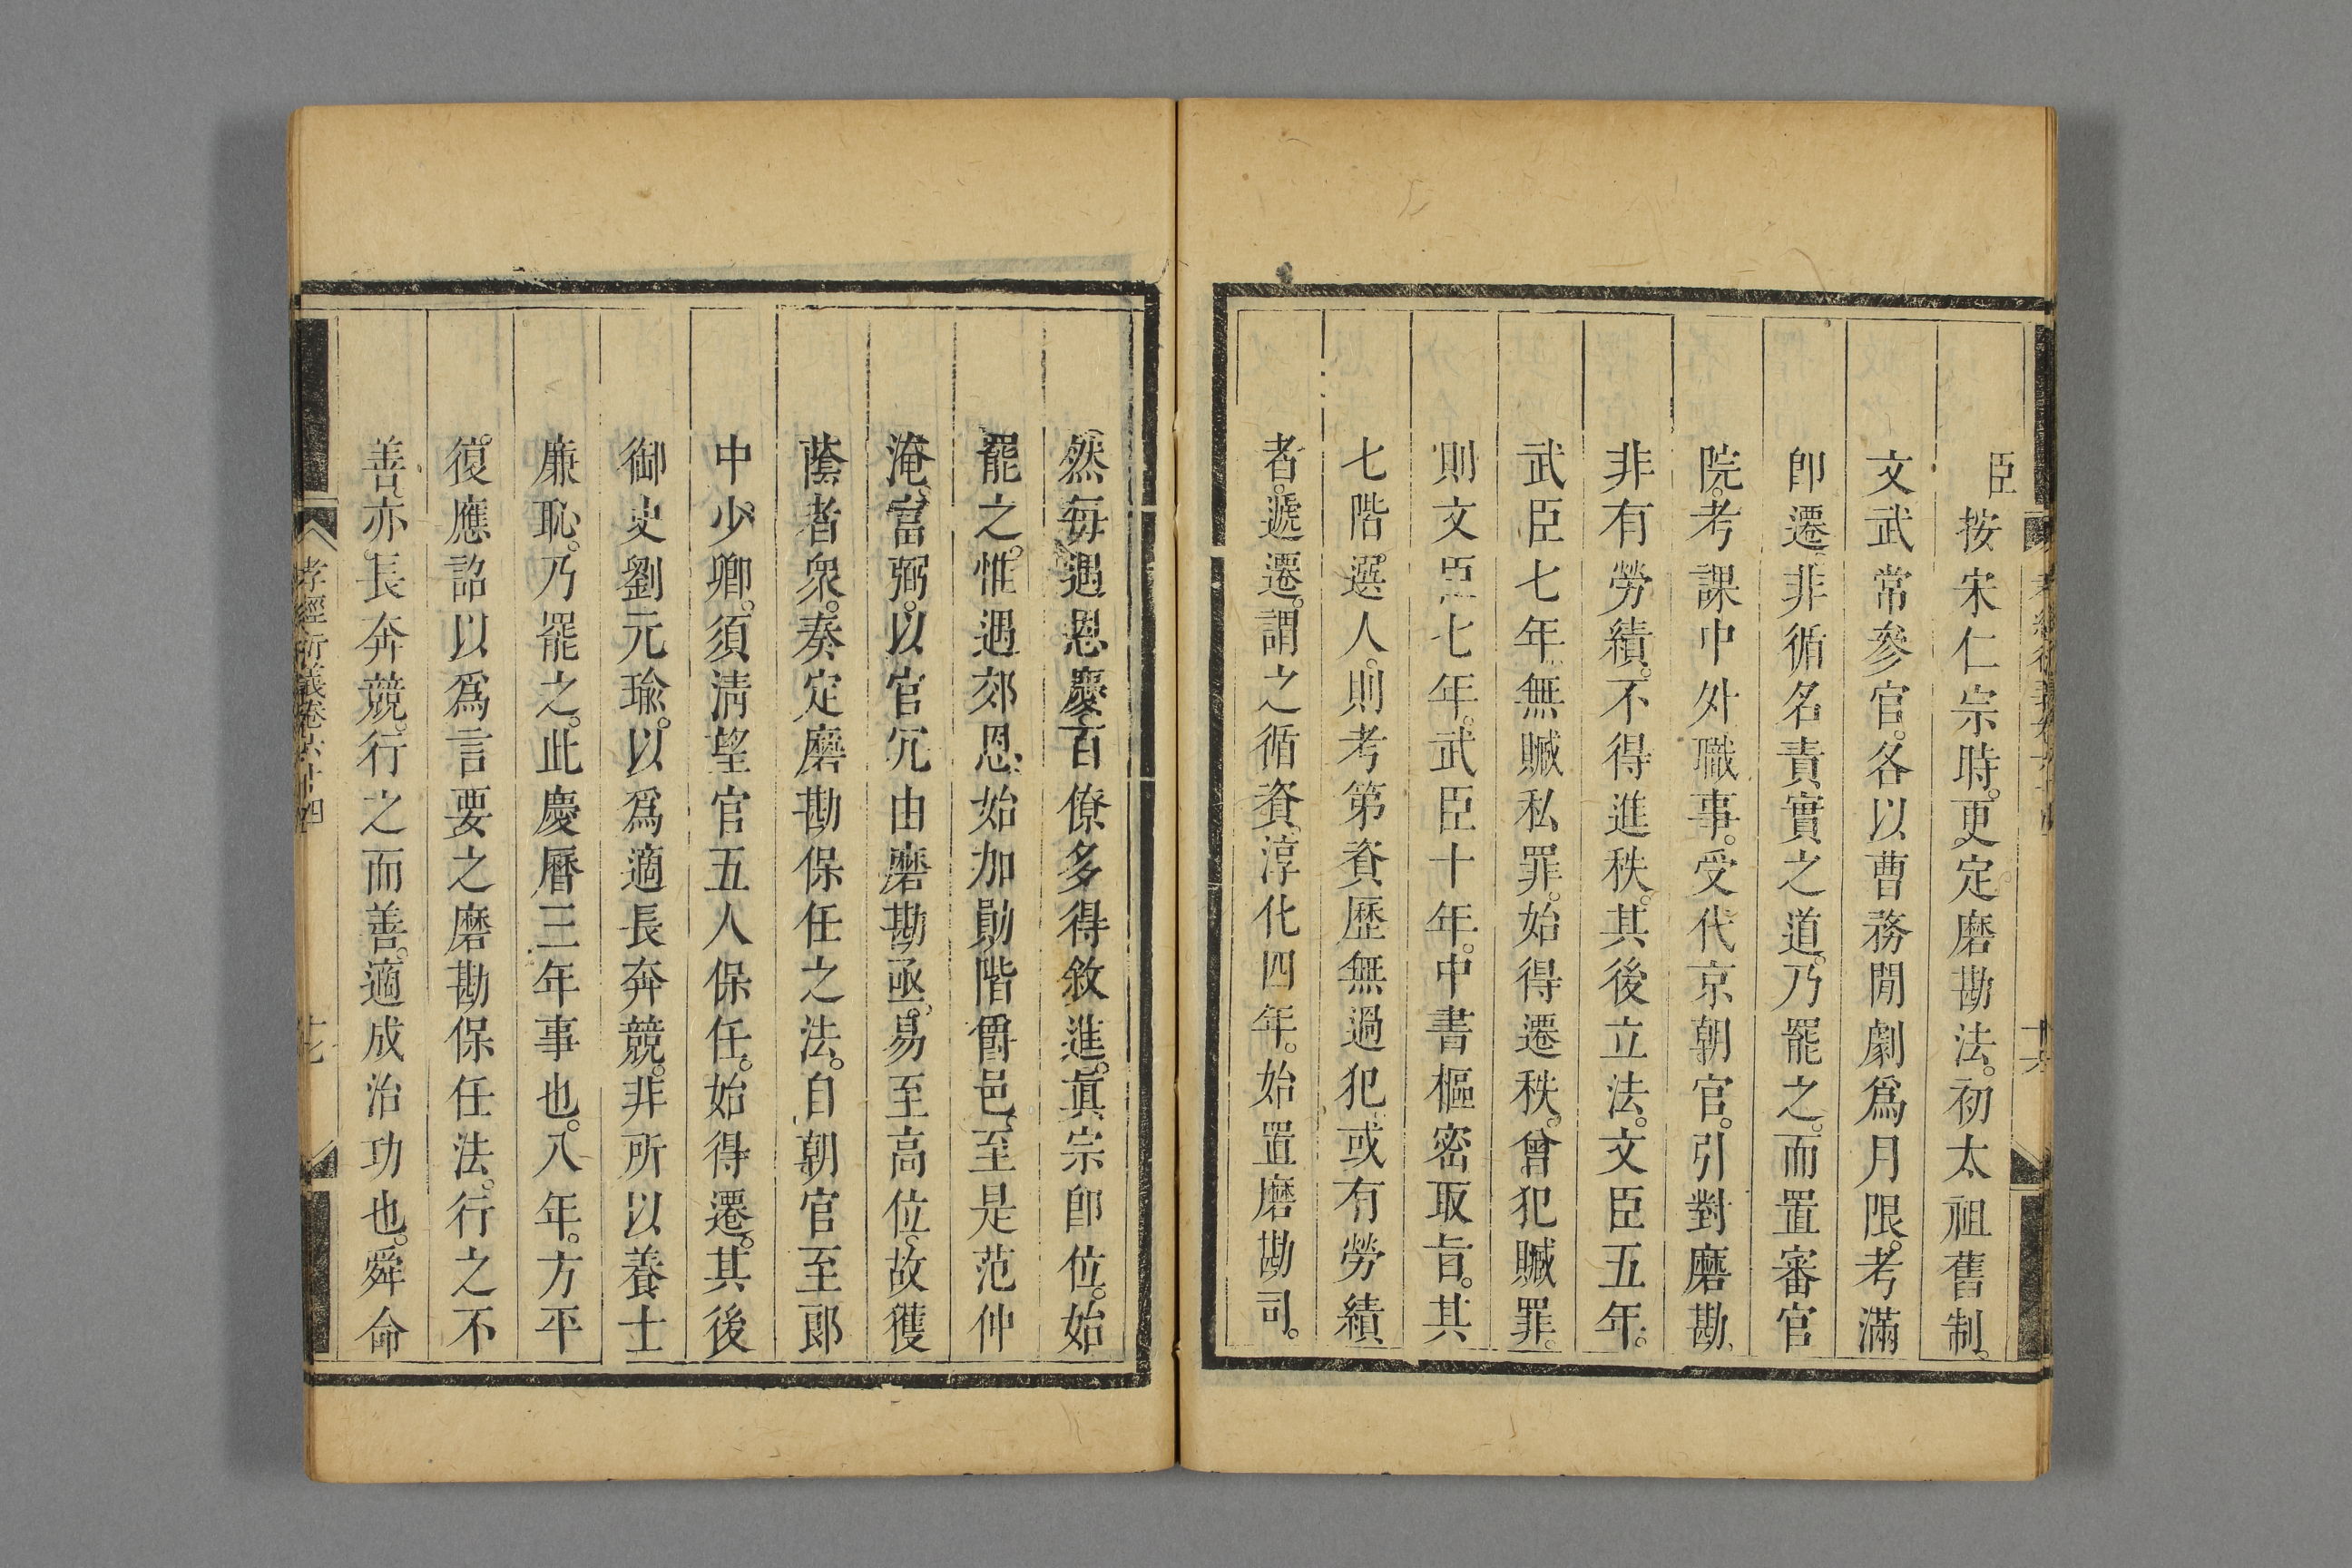 臣按宋仁宗時。更定磨勘法。初太祖舊制。
文武常參官。各以曹務閒劇爲月限。考滿
卽遷。非循名責實之道。乃罷之。而置審官
院。考課中外職事。受代京朝官。引對磨勘、
非有勞績。不得進秩。其後立法。文臣五年。
武臣七年。無贓私罪。始得遷秩。曾犯贓罪。
則文臣七年。武臣十年。中書樞密取旨。其
七階。選人。則考第資歷無過犯。或有勞績
者。遞遷。謂之循資。淳化四年。始置磨勘司。
然每遇恩慶。百僚多得敘進。眞宗卽位。始
罷之。惟遇郊恩。始加勛階爵邑。至是范仲
淹。富弼。以官冗由磨勘亟。易至高位。故獲
蔭者眾。奏定磨勘保任之法。自朝官至郞
中。少卿。須淸望官五人保任。始得遷。其後
御史劉元瑜。以爲適長奔競。非所以養士
廉恥。乃罷之。此慶曆三年事也。八年。方平
復應詔以爲言要之磨勘保任法。行之不
善。亦長奔競。行之而善。適成治功也。舜命
孝經衍義卷六十四